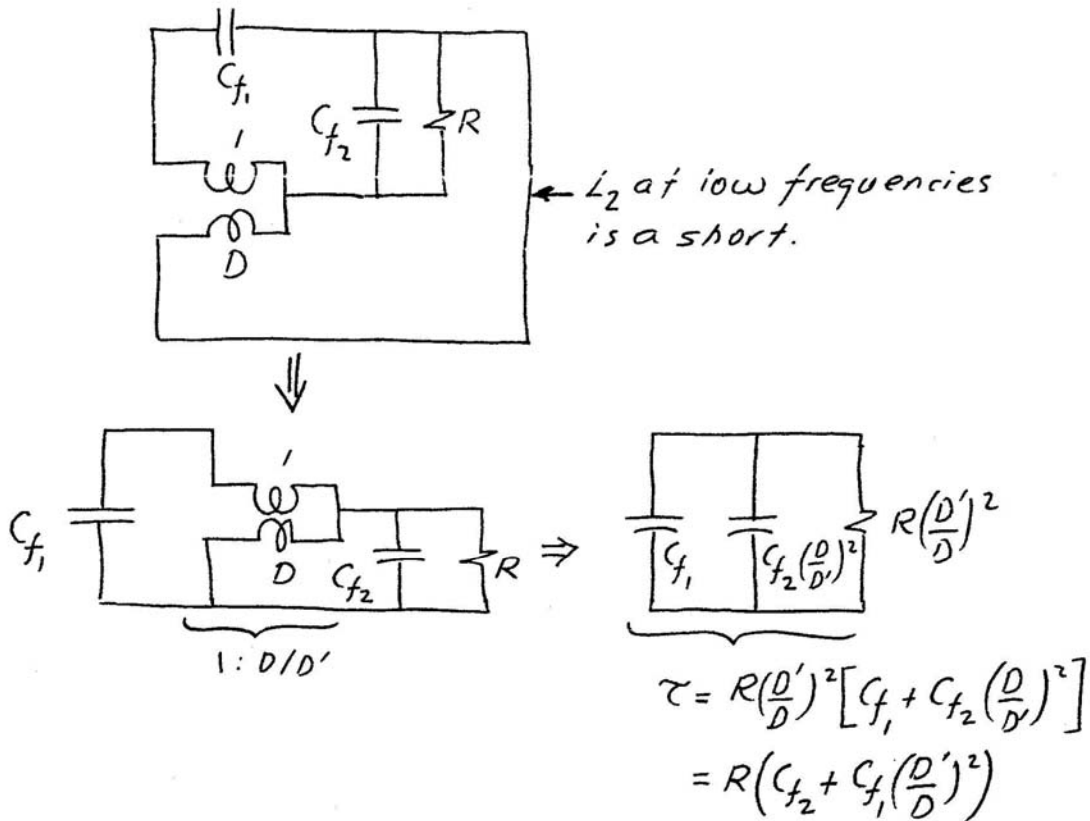 C_f₁
1
C_f₂
R
L₂ at low frequencies
is a short.
D
⇓
C_f₁
1
D
C_f₂
R
⇒
C_f₁
C_f₂(D/D')²
R(D'/D)²
1 : D/D'
τ = R(D'/D)²[C_f₁ + C_f₂(D/D')²]
= R(C_f₂ + C_f₁(D'/D)²)